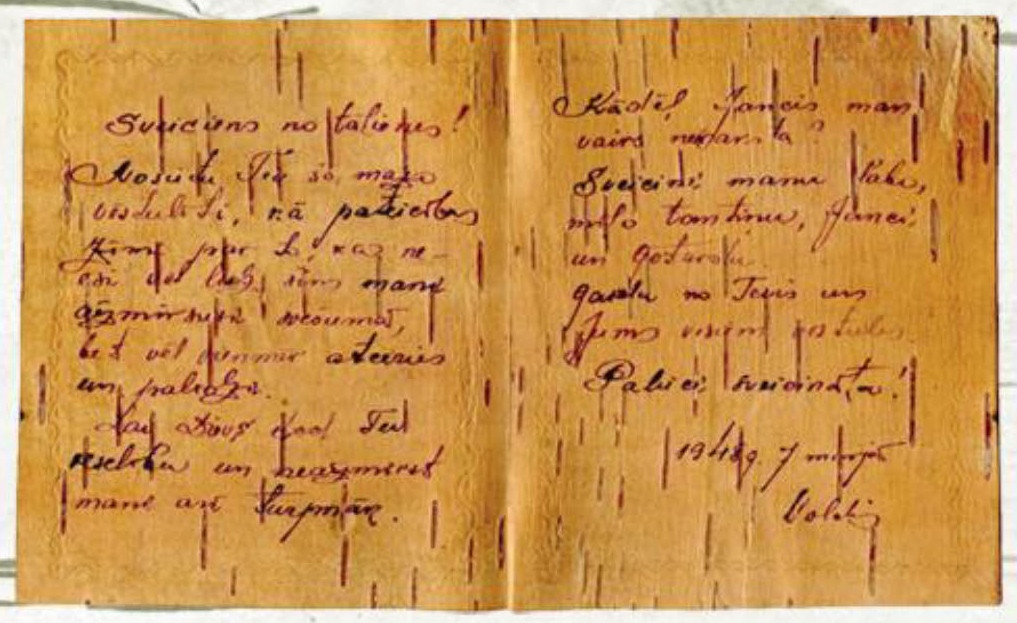 Sveiciens no tālienes!
Nosūtu Tev šo mazo
vēstulīti, kā pateicības
zīmi par to, ka ne-
esi vēl līdz šim mani
aizmirsusi svešumā,
bet vēl vienmēr atceries
un palīdzi.
Lai Dievs dod Tev
veselību un neaizmirst
mani arī turpmāk.
Kādēļ Jancis man
vairs neraksta?
Sveicini manu
mīļo tantiņu, Janci
un
gaidu no Tevis un
Jums visiem vēstules
Paliec sveicināta!
1948g. 7 martā